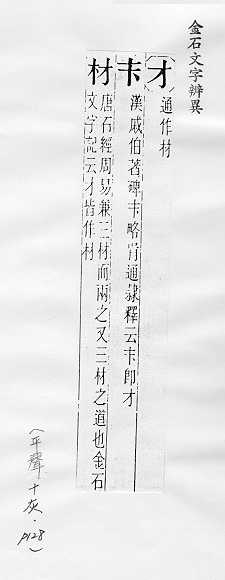 金石文字辨異
〔才〕通作材
卞 漢戚伯著碑卞略肖通隸釋云卞即才
材 唐石經周易兼三材而兩之又三材之道也金石
文字記云才皆作材
(平聲・十灰・P128)